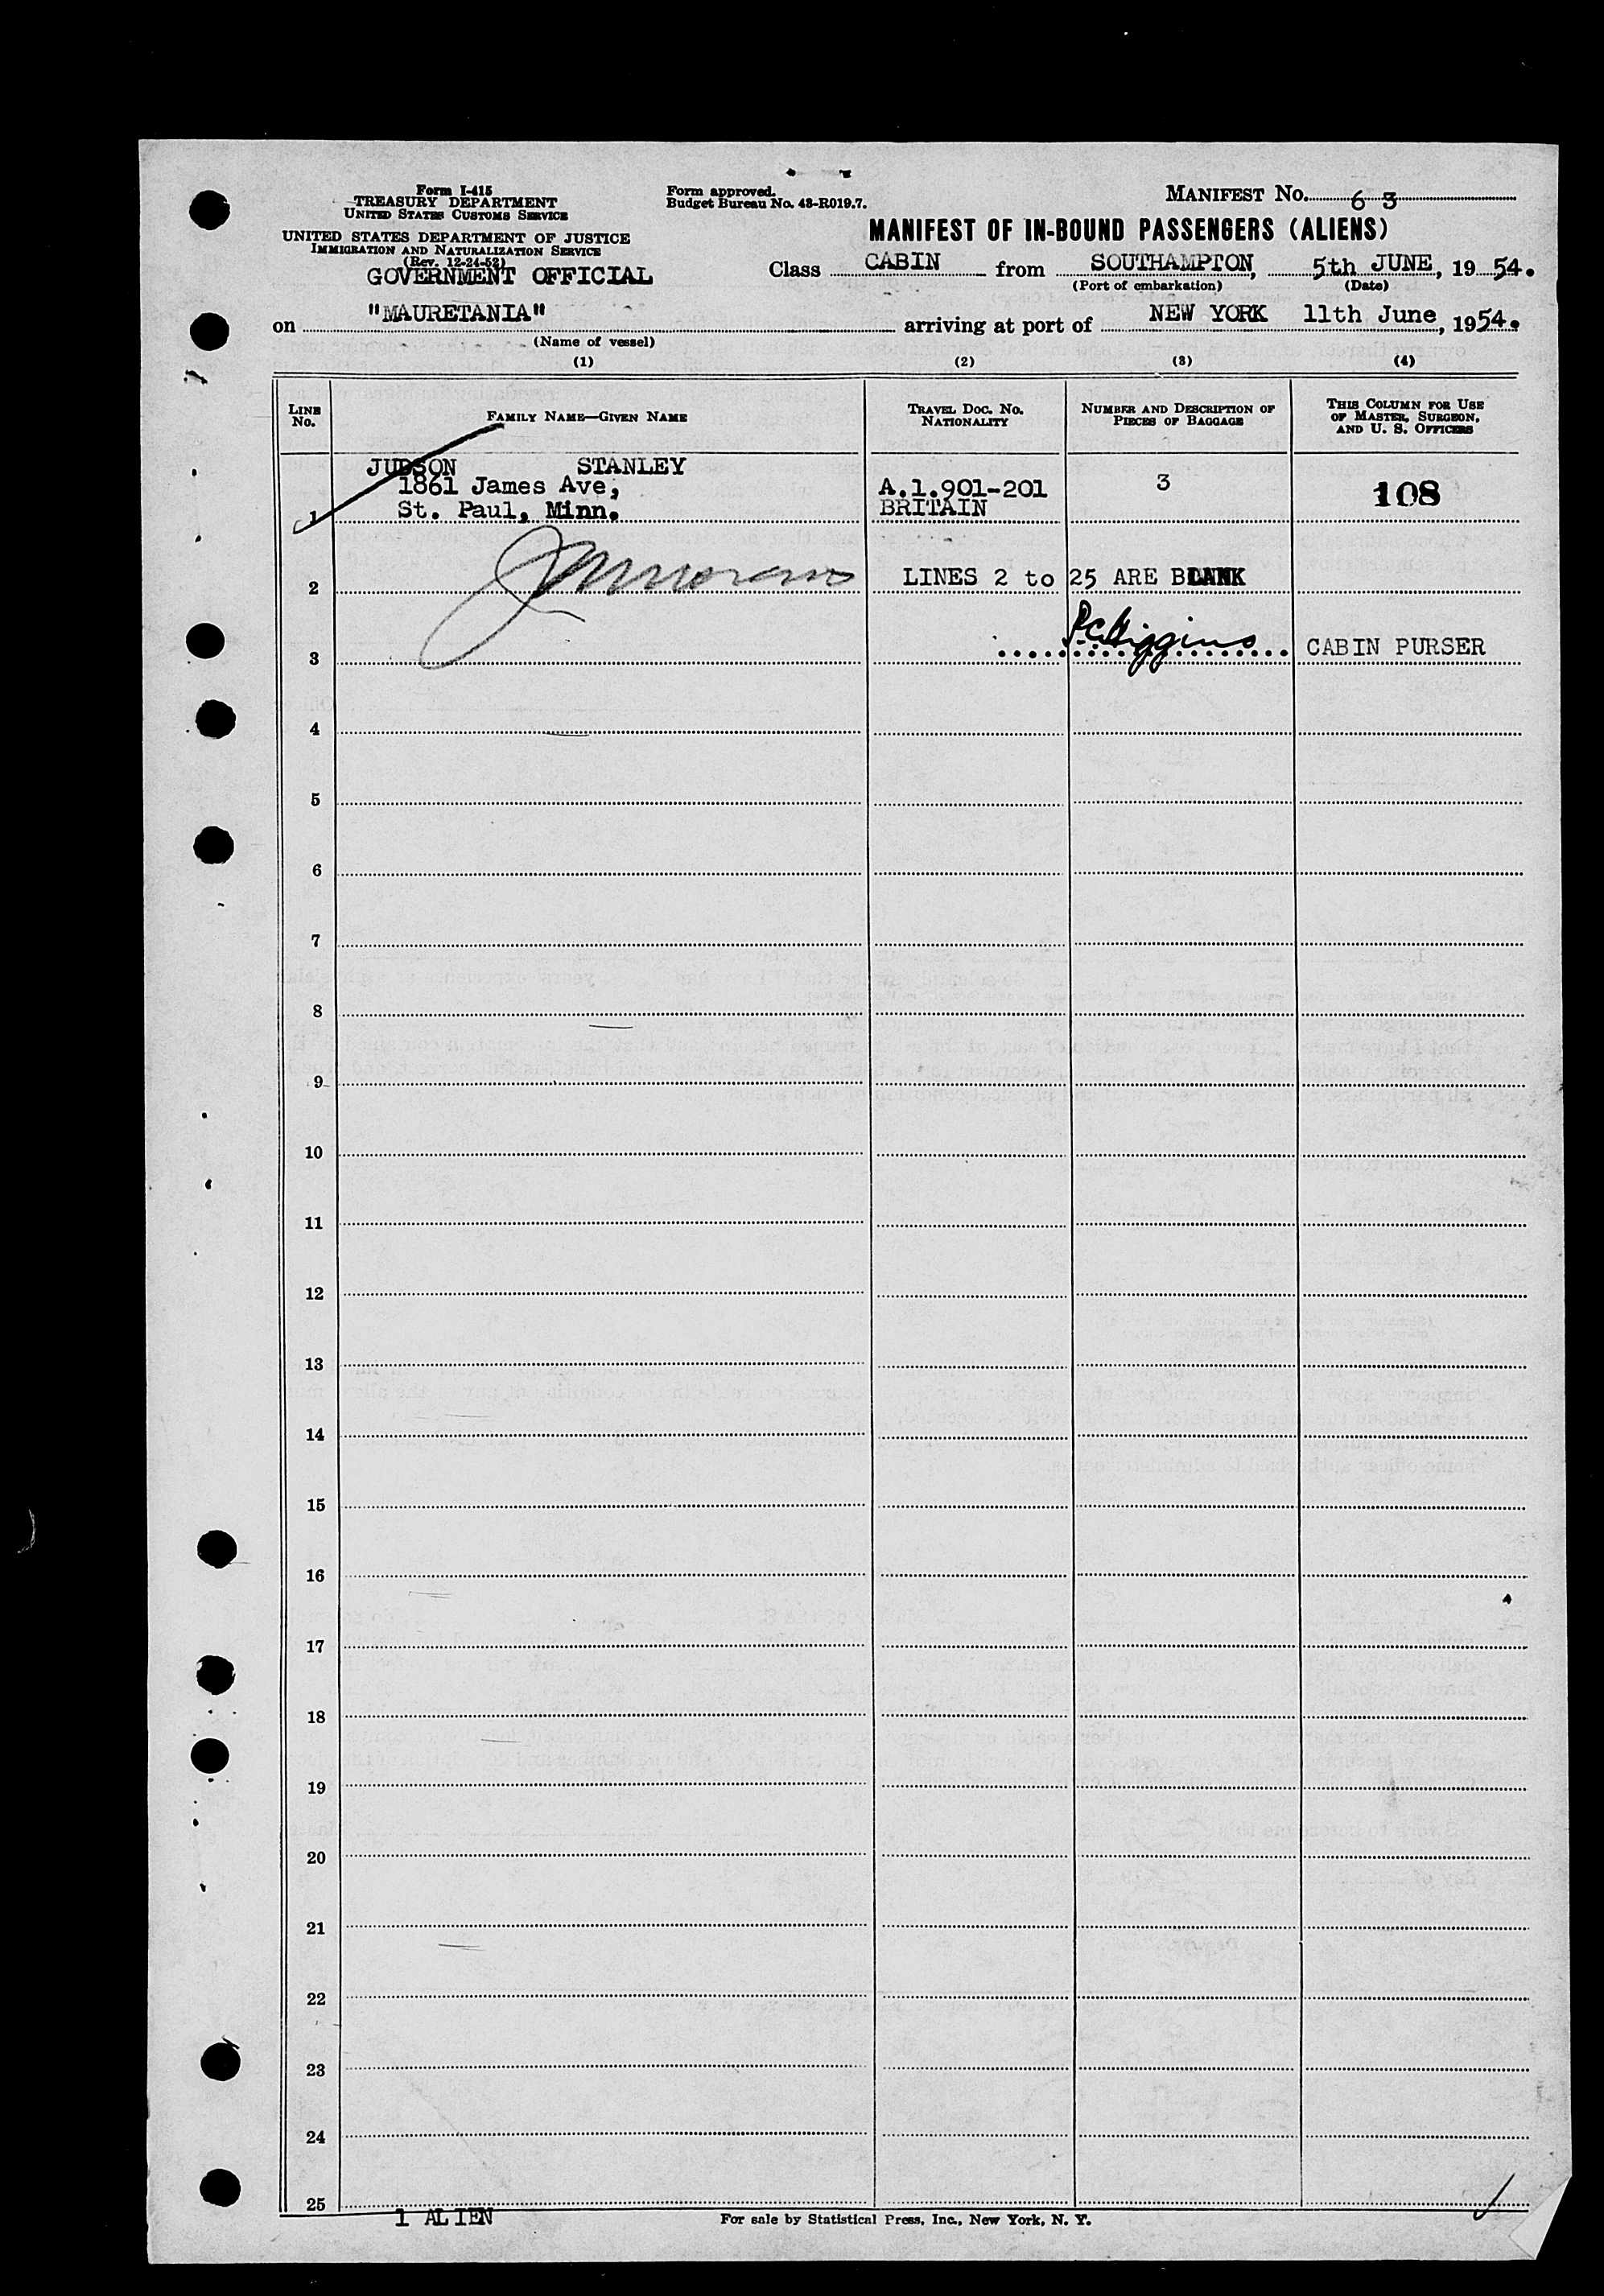 Form I-415
TREASURY DEPARTMENT
UNITED STATES CUSTOMS SERVICE
UNITED STATES DEPARTMENT OF JUSTICE
IMMIGRATION AND NATURALIZATION SERVICE
(Rev. 12-24-52)
GOVERNMENT OFFICIAL
Form approved.
Budget Bureau No. 43-R019.7.
MANIFEST No. 63
MANIFEST OF IN-BOUND PASSENGERS (ALIENS)
Class CABIN from SOUTHAMPTON, 5th JUNE, 1954.
(Port of embarkation) (Date)
on "MAURETANIA" arriving at port of NEW YORK 11th June, 1954.
(Name of vessel)
(1) (2) (3) (4)
LINE No. FAMILY NAME—GIVEN NAME TRAVEL DOC. NO. NATIONALITY NUMBER AND DESCRIPTION OF PIECES OF BAGGAGE THIS COLUMN FOR USE OF MASTER, SURGEON, AND U. S. OFFICERS
JUDSON STANLEY
1861 James Ave, A.1.901-201 3 108
1 St. Paul, Minn. BRITAIN
2 LINES 2 to 25 ARE BLANK
3 P.C. Higgins CABIN PURSER
4
5
6
7
8
9
10
11
12
13
14
15
16
17
18
19
20
21
22
23
24
25
1 ALIEN
For sale by Statistical Press, Inc., New York, N. Y.